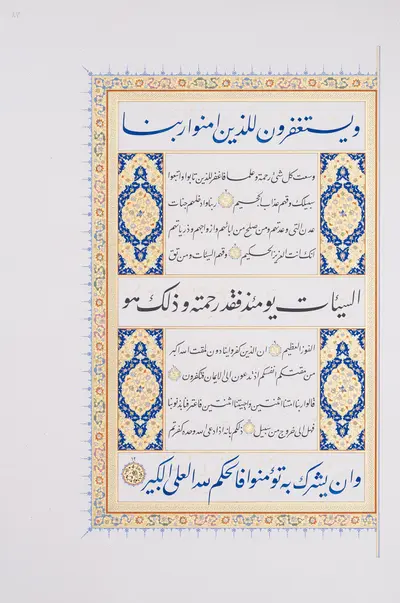 ويستغفرون للذين امنوا ربنا
وسعت كل شئ رحمة وعلما فاغفر للذين تابوا واتبعوا
سبيلك وقهم عذاب الجحيم ربنا وادخلهم جنات
عدن التى وعدتهم ومن صلح من ابائهم وازواجهم وذرياتهم
انك انت العزيز الحكيم وقهم السيئات ومن تق
السيئات يومئذ فقد رحمته وذلك هو
الفوز العظيم ان الذين كفروا ينادون لمقت الله اكبر
من مقتكم انفسكم اذ تدعون الى الايمان فتكفرون
قالوا ربنا امتنا اثنتين واحييتنا اثنتين فاعترفنا بذنوبنا
فهل الى خروج من سبيل ذلكم بانه اذا دعى الله وحده كفرتم
وان يشرك به تؤمنوا فالحكم لله العلى الكبير